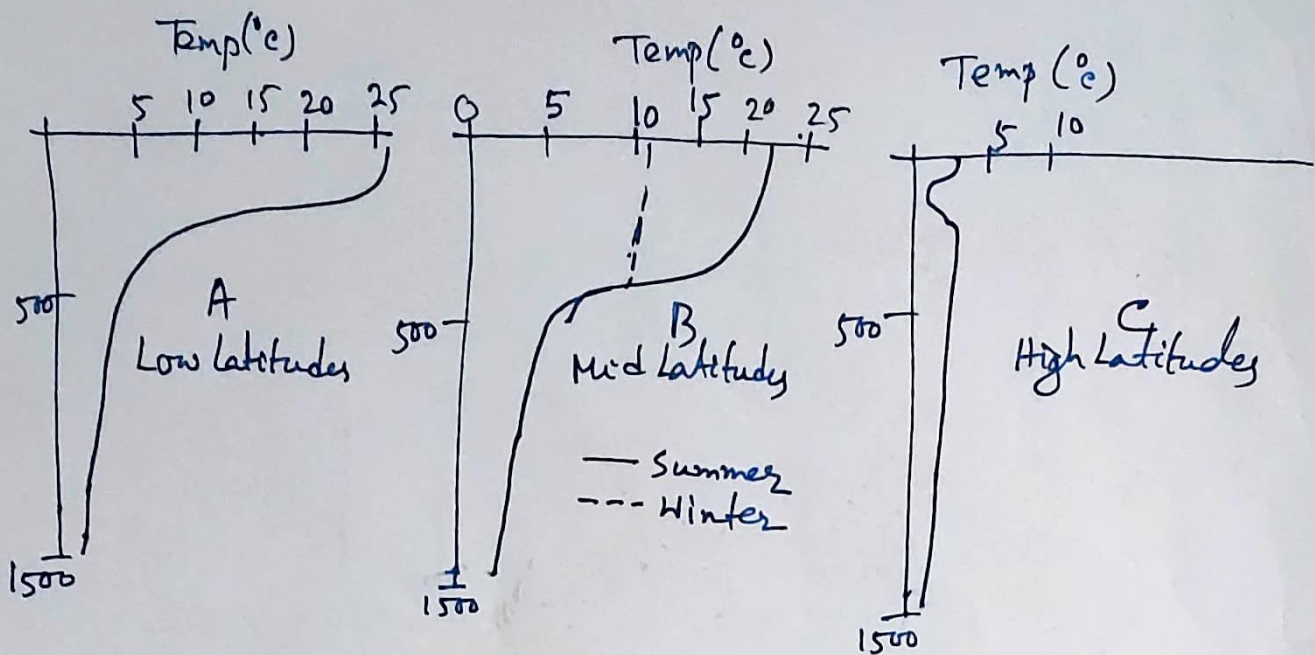 Temp(°c)
5 10 15 20 25
500
A
Low Latitudes
1500
Temp(°c)
0 5 10 15 20 25
500
B
Mid Latitudes
— Summer
--- Winter
1500
Temp (°c)
5 10
500
C
High Latitudes
1500